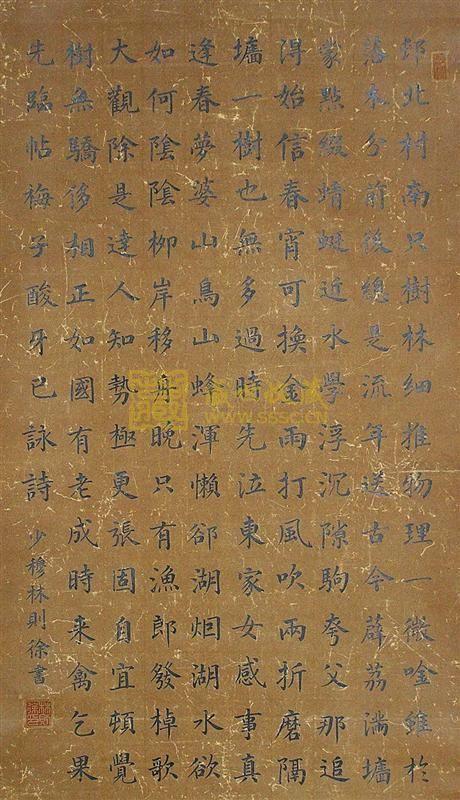 邨北村南只樹林細推物理一微唫雖於
落木分前後總是流年送古今薜荔滿墻
蒙點綴蜻蜓近水學浮沉隙駒夸父那追
得始信春宵可換金雨打風吹兩折磨隔
墻一樹也無多過時先泣東家女感事真
逢春夢婆山鳥山蜂渾懶郤湖烟湖水欲
如何陰陰柳岸移舟晚只有漁郎發棹歌
大觀除是達人知勢極更張固自宜頓覺
樹無驕侈相正如國有老成時来禽乞果
先臨帖梅子酸牙已詠詩
少穆林則徐書
www.sssc.cn